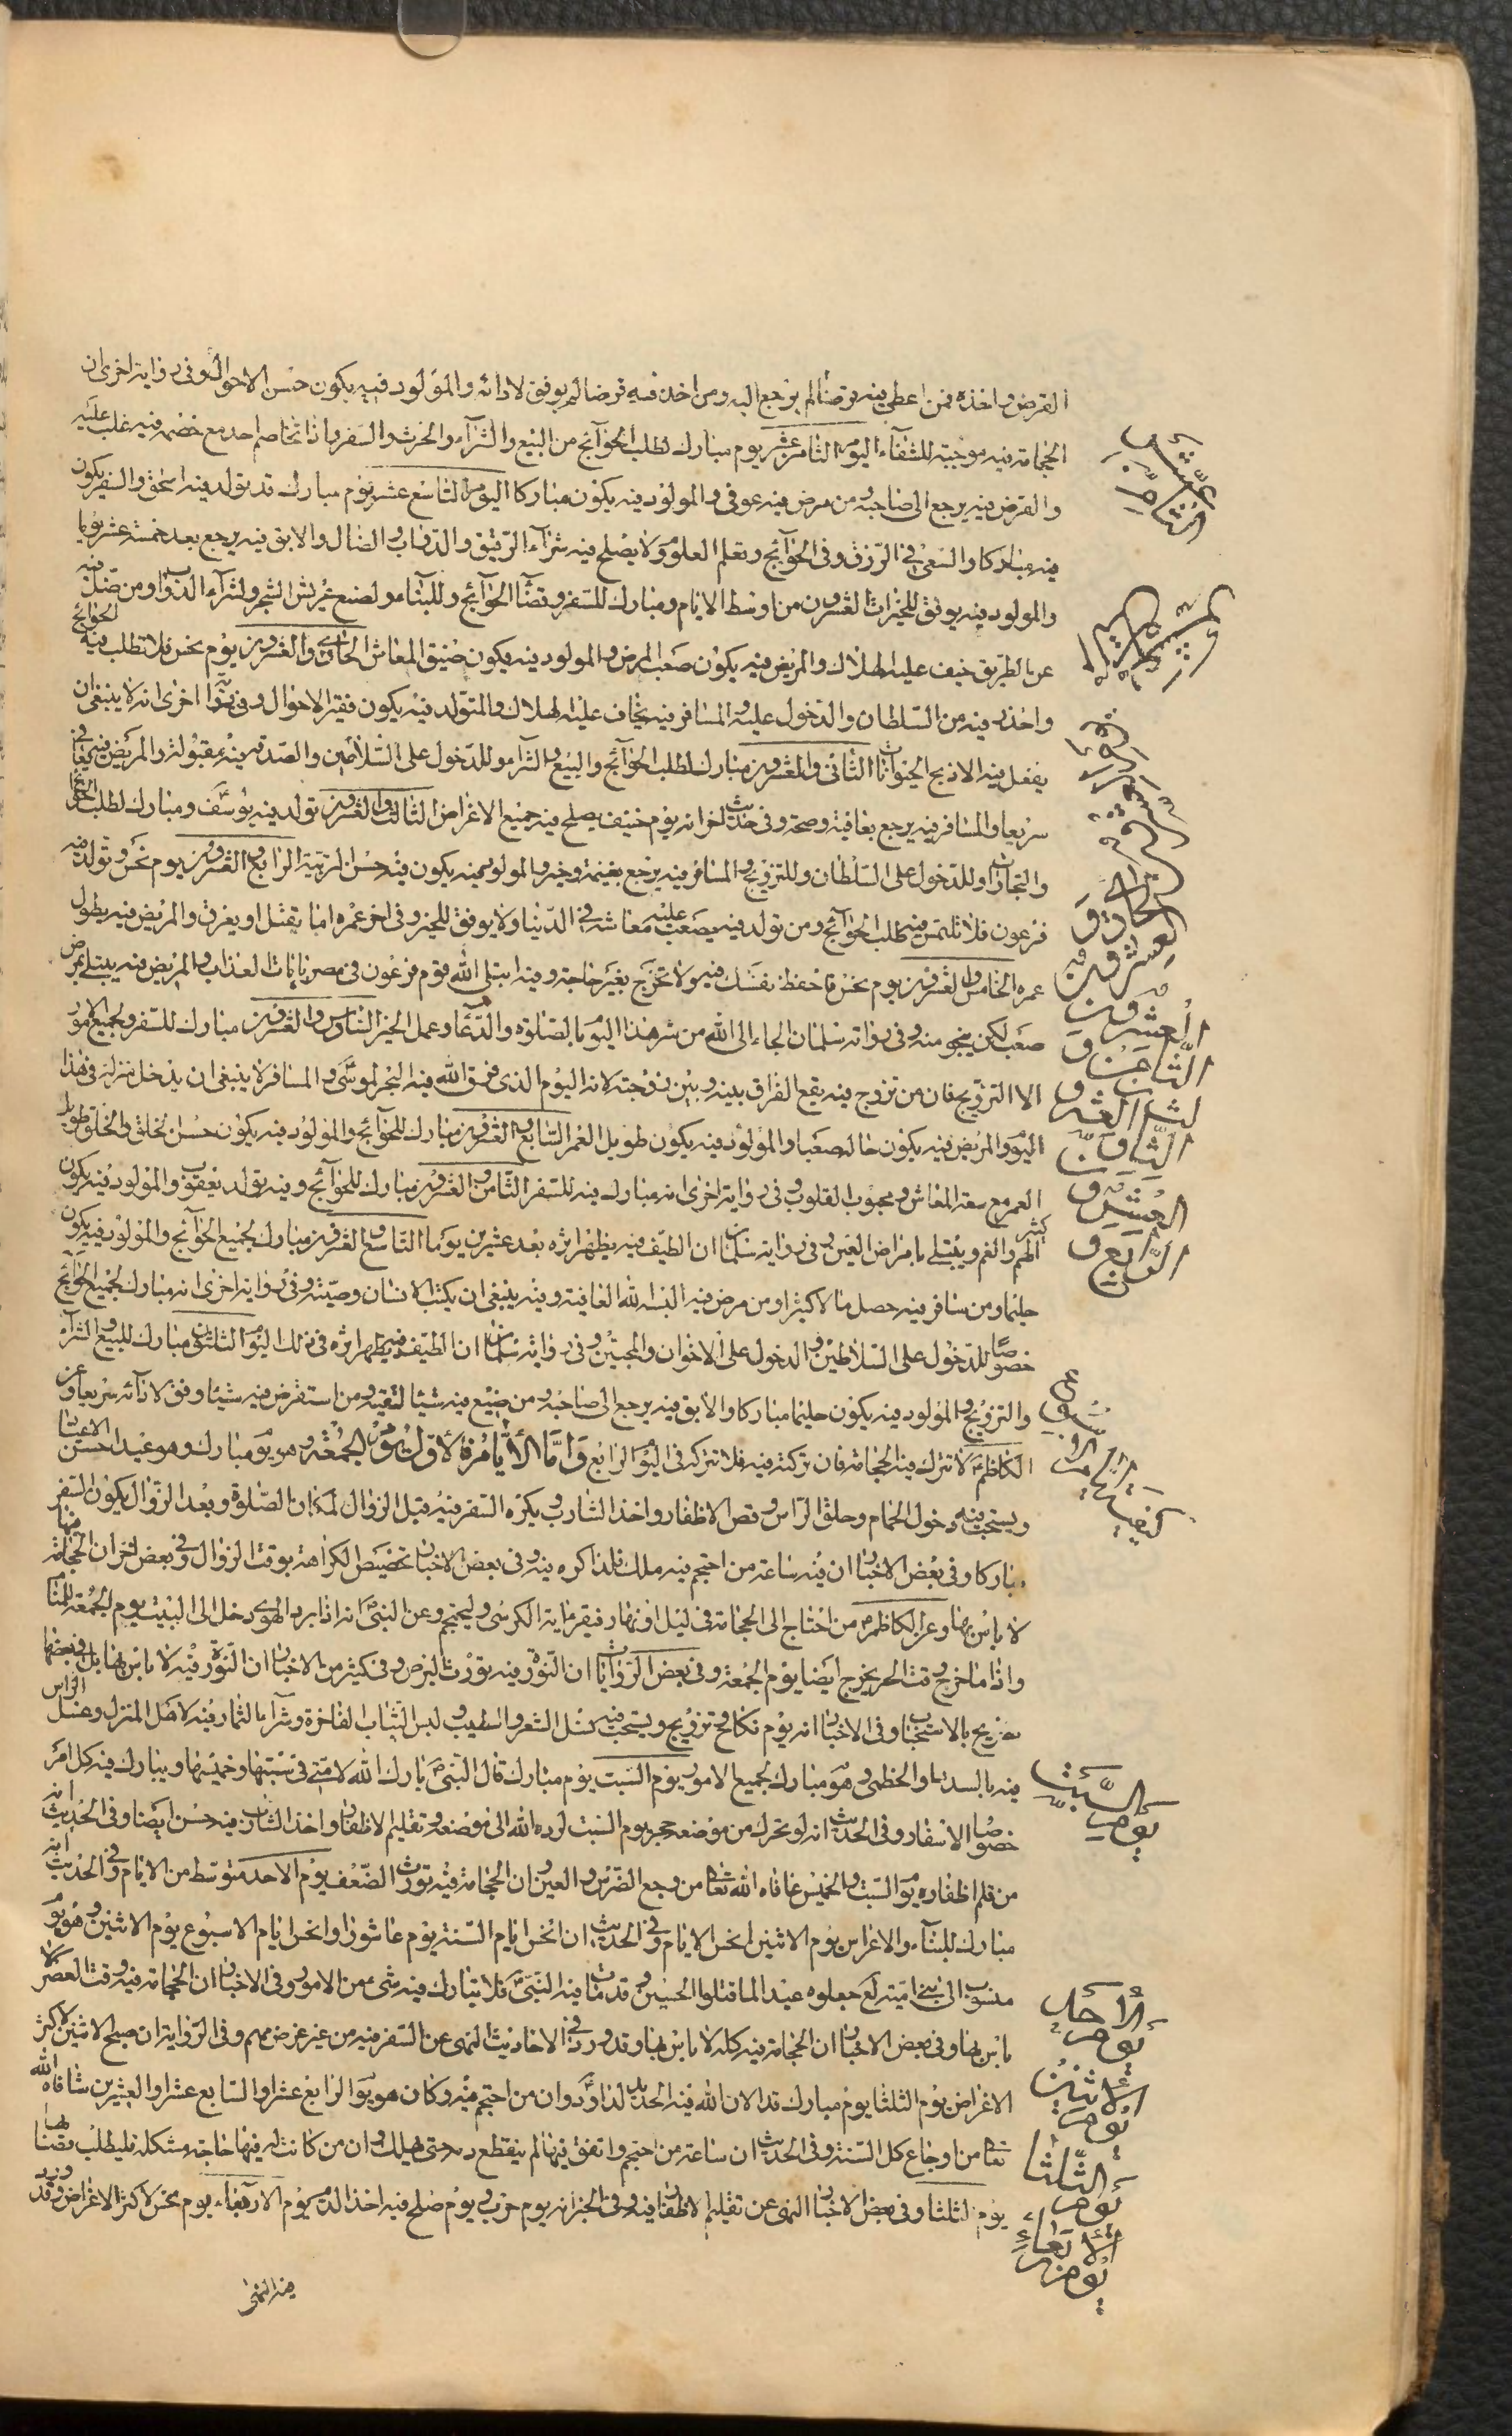 القرض واخذه فمن اعطى فيه قرضا لم يرجع اليه ومن اخذ فيه قرضا لم يوفق لادائه والمولود فيه يكون حسن الاحوال وفى رواية اخرى ان
الحجامة فيه موجبة للشفاء اليوم الثامن عشر يوم مبارك لطلب الحوآئج من البيع والشرآء والحرث والسفر واذا تخاصم احد مع خصمه فيه غلب عليه
والقرض فيه يرجع الى صاحبه ومن مرض فيه عوفى والمولود فيه يكون مباركا اليوم التاسع عشر يوم مبارك قد تولد فيه اسحق والسفر يكون
فيه مباركا والسعى فى الرزق وفى الحوآئج وتعلم العلوم ولا يصلح فيه شرآء الرقيق والدواب والضال والابق فيه يرجع بعد خمسة عشر يوما
والمولود فيه يوفق للخيرات العشرون من اوسط الايام ومبارك للسفر وقضآء الحوآئج وللبنآء ولصنع عريش الشجر ولشرآء الدواب ومن ضل فيه
عن الطريق خيف عليه الهلاك والمريض فيه يكون صعب المرض والمولود فيه يكون ضيق المعاش الحادى والعشرون يوم نحس فلا تطلب فيه الحوائج
واحذر فيه من السلطان والدخول عليه والمسافر فيه يخاف عليه الهلاك والمتولد فيه يكون فقير الاحوال وفى رواية اخرى انه لا ينبغى ان
يفعل فيه الا ذبح الحيوانات الثانى والعشرون مبارك لطلب الحوآئج والبيع والشرآء وللدخول على السلاطين والصدقة فيه مقبولة والمريض فيه يعافى
سريعا والمسافر فيه يرجع بعافية وصحة وفى حديث اخر انه يوم خفيف يصلح فيه جميع الاغراض الثالث والعشرون تولد فيه يوسف ومبارك لطلب الحوائج
والتجارات وللدخول على السلطان وللتزويج والمسافر فيه يرجع بغنيمة وخير والمولود فيه يكون فيه حسن التربية الرابع والعشرون يوم نحس وتولد فيه
فرعون فلا تلتمس فيه طلب الحوآئج ومن تولد فيه يصعب عليه معاشه فى الدنيا ولا يوفق للخير وفى اخر عمره اما يقتل او يغرق والمريض فيه يطول
عمره الخامس والعشرون يوم نحس فاحفظ نفسك فيه ولا تخرج بغير حاجة وفيه ابتلى الله قوم فرعون فى مصر بايات العذاب والمريض فيه يبتلى بمرض
صعب لكن ينجو منه وفى رواية سلمان الجاء الى الله من شر هذا اليوم بالصلوة والدعاء وعمل الخير السادس والعشرون مبارك للسفر ولجميع الامور
الا التزويج فان من تزوج فيه يقع الفراق بينه وبين زوجته لانه اليوم الذى فرق الله فيه البحر لموسى والمسافر لا ينبغى ان يدخل منزله فى هذا
اليوم والمريض فيه يكون حاله صعبا والمولود فيه يكون طويل العمر السابع والعشرون مبارك للحوآئج والمولود فيه يكون حسن الخلق والخلق طويل
العمر مع سعة المعاش ومحبوب القلوب وفى رواية اخرى انه مبارك فيه للسفر الثامن والعشرون مبارك للحوآئج وفيه تولد يعقوب والمولود فيه يكون كثير
الهم والغم ويبتلى بامراض العين وفى رواية سلمان ان الطيف فيه يظهر اثره بعد عشرين يوما التاسع والعشرون مبارك لجميع الحوآئج والمولود فيه يكون
حليما ومن سافر فيه حصل مالا كثيرا ومن مرض فيه البسه الله العافية وفيه ينبغى ان يكتب الانسان وصيته وفى رواية اخرى انه مبارك لجميع الحوآئج
خصوصا للدخول على السلاطين والدخول على الاخوان والمحبين وفى رواية سلمان ان الطيف فيه يظهر اثره فى ذلك اليوم الثلثون مبارك للبيع والشرآء
والتزويج والمولود فيه يكون حليما مباركا والابق فيه يرجع الى صاحبه ومن ضيع فيه شيئا لقيه ومن استقرض فيه شيئا وفق لادآئه سريعا وعن
الكاظم لا تترك فيه الحجامة فان تركته فيه فلا تتركه فى اليوم الرابع واما الايام فالاول يوم الجمعة وهو يوم مبارك وهو عيد احسن الاعياد
ويستحب فيه دخول الحمام وحلق الراس وقص الاظفار واخذ الشارب ويكره السفر فيه قبل الزوال لمكان الصلوة وبعد الزوال يكون السفر
مباركا وفى بعض الاخبار ان فيه ساعة من احتجم فيها هلك فلذا كره فيه وفى بعض الاخبار تخصيص الكراهة بوقت الزوال وفى بعض اخر ان الحجامة
لا باس بها وعن الكاظم من احتاج الى الحجامة فى ليل او نهار فيقرء اية الكرسى وليحتجم وعن النبى انه اذا برد الهوى دخل الى البيت يوم الجمعة
واذا ما خرج وقت الحر يخرج ايضا يوم الجمعة وفى بعض الروايات ان النورة فيه تورث البرص وفى كثير من الاخبار ان النورة فيه لا باس بها بل فى بعضها
تصريح بالاستحباب وفى الاخبار انه يوم نكاح وتزويج ويستحب فيه غسل الشعر والطيب ولبس الثياب الفاخرة وشرآء الثمار فيه لاهل المنزل وغسل الراس
فيه بالسدر والخطمى وهو مبارك لجميع الامور يوم السبت يوم مبارك قال النبى بارك الله لامتى فى سبتها وخميسها ويبارك فيه كل امر
خصوصا الاسفار وفى الحديث انه لو تحرك من موضعه حجر يوم السبت لرده الله الى موضعه وتقليم الاظفار واخذ الشارب فيه حسن ايضا وفى الحديث انه
من قلم اظفاره يوم السبت والخميس عافاه الله تعالى من وجع الضرس والعين وان الحجامة فيه تورث الضعف يوم الاحد متوسط من الايام وفى الحديث انه
مبارك للبنآء والاغراس يوم الاثنين انحس الايام وفى الحديث ان انحس ايام السنة يوم عاشورا وانحس ايام الاسبوع يوم الاثنين وهو يوم
منسوب الى بنى امية لع جعلوه عيدا لما قتلوا الحسين وقد مات فيه النبى فلا يتبارك فيه شىء من الامور وفى الاخبار ان الحجامة فيه وقت العصر لا
باس بها وفى بعض الاخبار ان الحجامة فيه كله لا باس بها وقد ورد فى الاحاديث النهى عن السفر فيه من غير غرض مهم وفى الرواية ان صبح الاثنين لاكثر
الاغراض يوم الثلثا يوم مبارك قد الان الله فيه الحديد لداود وان من احتجم فيه وكان هو يوم الرابع عشر او السابع عشر او العشرين شافاه الله
تعالى من اوجاع كل السنة وفى الحديث ان ساعة من احتجم واتفق فيها لم ينقطع دمه حتى يهلك وان من كانت له فيها حاجة مشكلة فليطلب قضاها
يوم الثلثا وفى بعض الاخبار النهى عن تقليم الاظفار فيه وفى الخبر انه يوم حرب ويوم صلح فيه اخذ الدم يوم الاربعاء يوم نحس لاكثر الاغراض وقد ورد
فيه النهى
الثامن عشر
يوم السبت
يوم الاحد
يوم الاثنين
يوم الثلثا
يوم الاربعاء